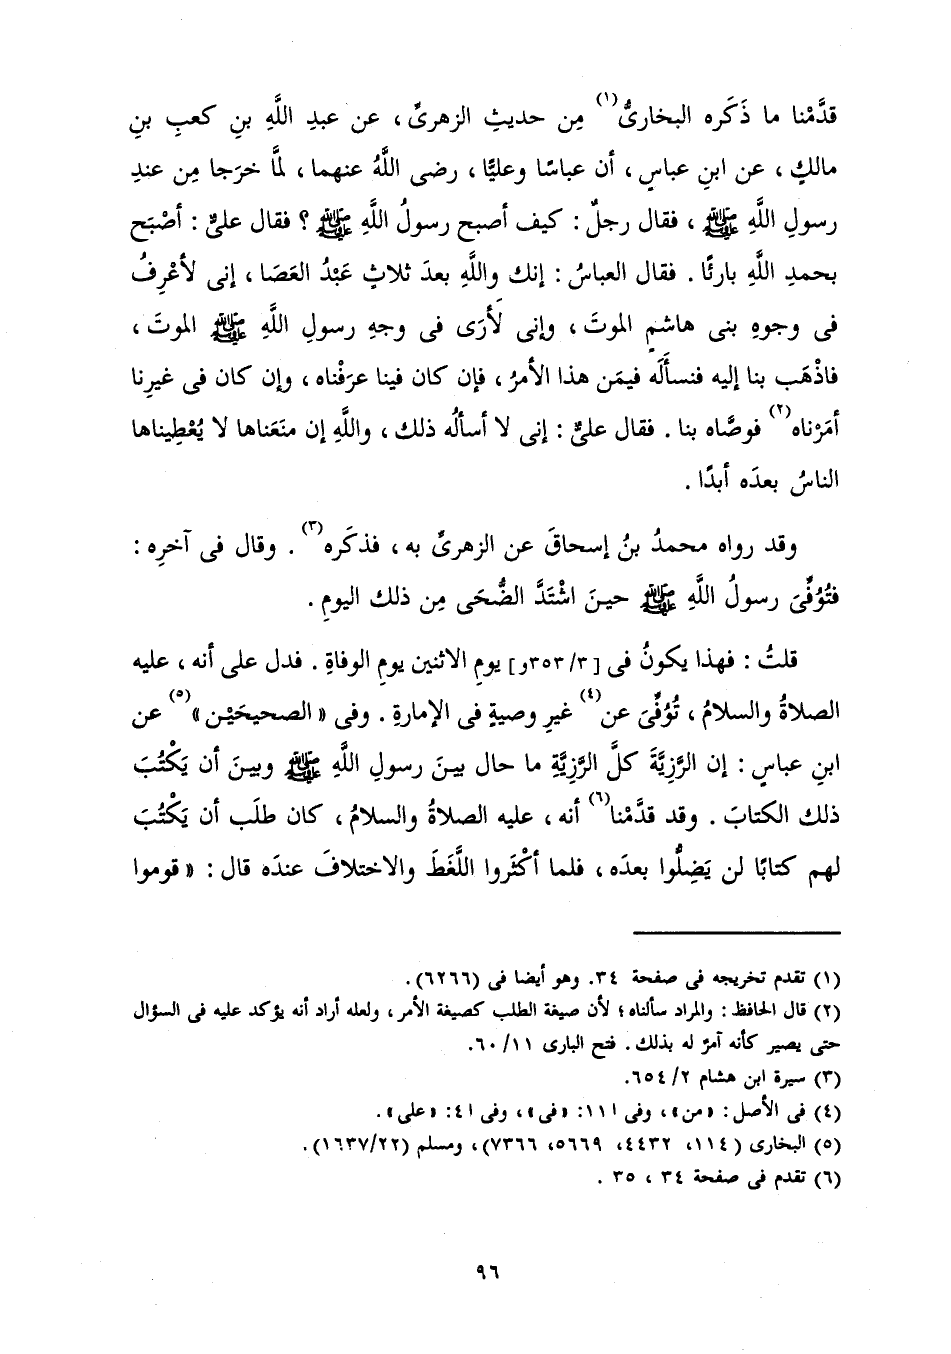 قدَّمْنا ما ذَكَره البخارىُّ(١) مِن حديثِ الزهرىِّ، عن عبدِ اللَّهِ بنِ كعبِ بنِ
مالكٍ، عن ابنِ عباسٍ، أن عباسًا وعليًّا، رضى اللَّهُ عنهما، لمَّا خرَجا مِن عندِ
رسولِ اللَّهِ ﷺ، فقال رجلٌ: كيف أصبح رسولُ اللَّهِ ﷺ؟ فقال علىٌّ: أصْبَح
بحمدِ اللَّهِ بارئًا. فقال العباسُ: إنك واللَّهِ بعدَ ثلاثٍ عَبْدُ العَصَا، إنى لأعْرِفُ
فى وجوهِ بنى هاشمٍ الموتَ، وإنى لَأرَى فى وجهِ رسولِ اللَّهِ ﷺ الموتَ،
فاذْهَب بنا إليه فنسألَه فيمَن هذا الأمرُ، فإن كان فينا عرَفْناه، وإن كان فى غيرِنا
أمَرْناه(٢) فوصَّاه بنا. فقال علىٌّ: إنى لا أسألُه ذلك، واللَّهِ إن منَعَناها لا يُعْطِيناها
الناسُ بعدَه أبدًا.
وقد رواه محمدُ بنُ إسحاقَ عن الزهرىِّ به، فذكَره(٣). وقال فى آخرِه:
فتُوُفِّىَ رسولُ اللَّهِ ﷺ حينَ اشْتَدَّ الضُّحَى مِن ذلك اليومِ.
قلتُ: فهذا يكونُ فى [٣/٣٥٣و] يومِ الاثنين يومِ الوفاةِ. فدل على أنه، عليه
الصلاةُ والسلامُ، تُوُفِّىَ عن(٤) غيرِ وصيةٍ فى الإمارةِ. وفى «الصحيحَيْن»(٥) عن
ابنِ عباسٍ: إن الرَّزِيَّةَ كلَّ الرَّزِيَّةِ ما حال بينَ رسولِ اللَّهِ ﷺ وبينَ أن يَكْتُبَ
ذلك الكتابَ. وقد قدَّمْنا(٦) أنه، عليه الصلاةُ والسلامُ، كان طلَب أن يَكْتُبَ
لهم كتابًا لن يَضِلُّوا بعدَه، فلما أكْثَروا اللَّغَطَ والاختلافَ عندَه قال: «قوموا
(١) تقدم تخريجه فى صفحة ٣٤. وهو أيضا فى (٦٢٦٦).
(٢) قال الحافظ: والمراد سألناه؛ لأن صيغة الطلب كصيغة الأمر، ولعله أراد أنه يؤكد عليه فى السؤال
حتى يصير كأنه آمرٌ له بذلك. فتح البارى ١١/ ٦٠.
(٣) سيرة ابن هشام ٢/ ٦٥٤.
(٤) فى الأصل: «من»، وفى ١١١: «فى»، وفى ٤١: «على».
(٥) البخارى (١١٤، ٤٤٣٢، ٥٦٦٩، ٧٣٦٦)، ومسلم (١٦٣٧/٢٢).
(٦) تقدم فى صفحة ٣٤، ٣٥.
٩٦